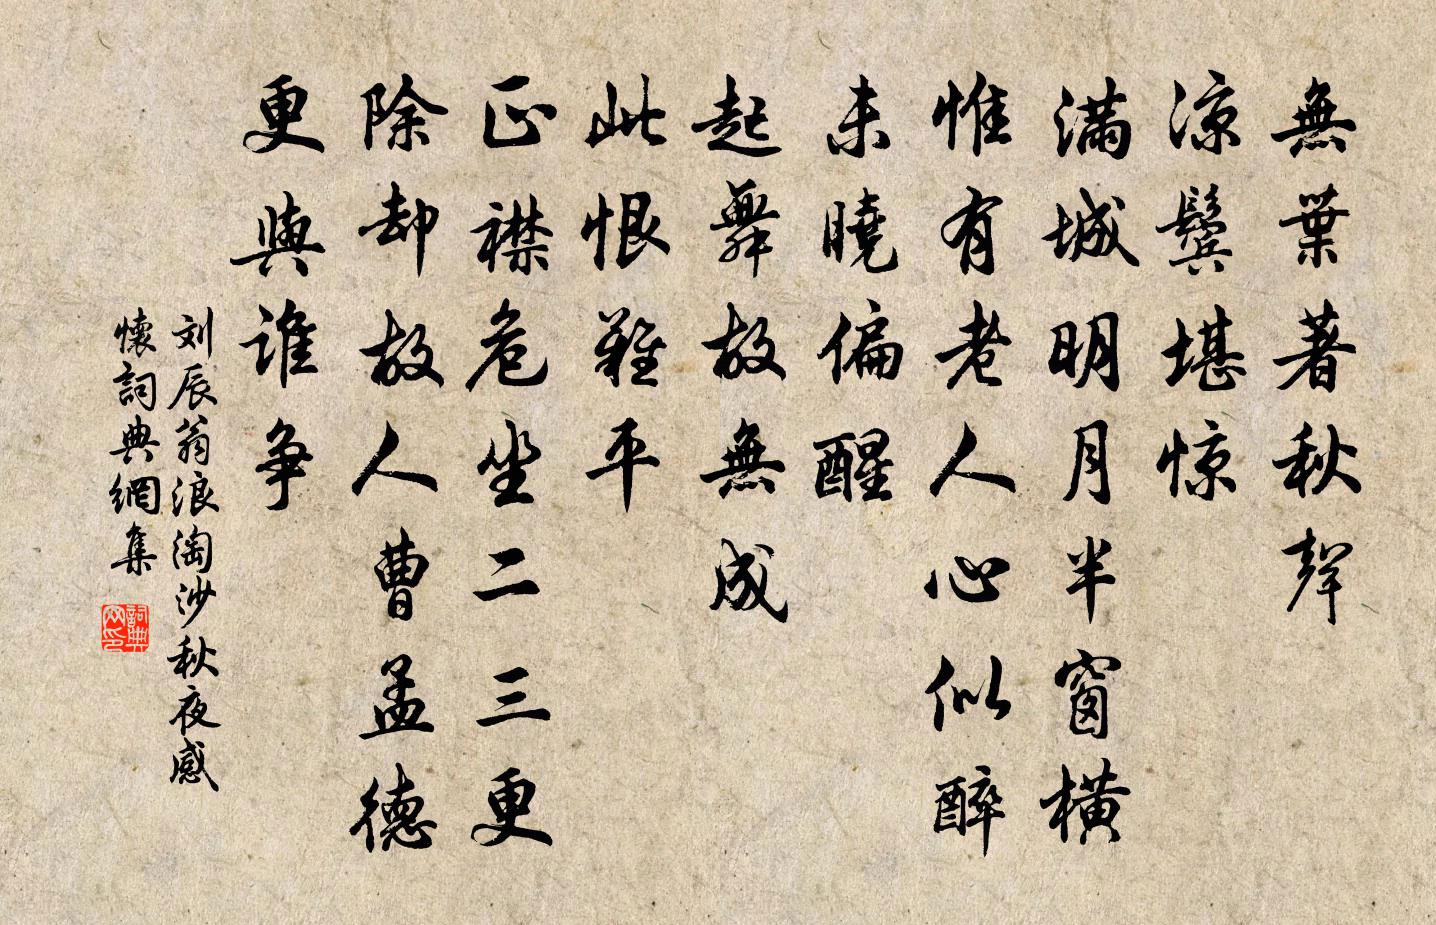 無葉著秋聲
涼鬓堪惊
滿城明月半窗橫
惟有老人心似醉
未曉偏醒
起舞故無成
此恨難平
正襟危坐二三更
除却故人曹孟德
更與谁争
刘辰翁浪淘沙秋夜感
懷詞典網集
詞典网印